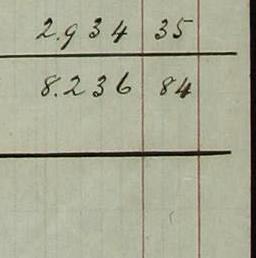 2.934 35
8.236 84